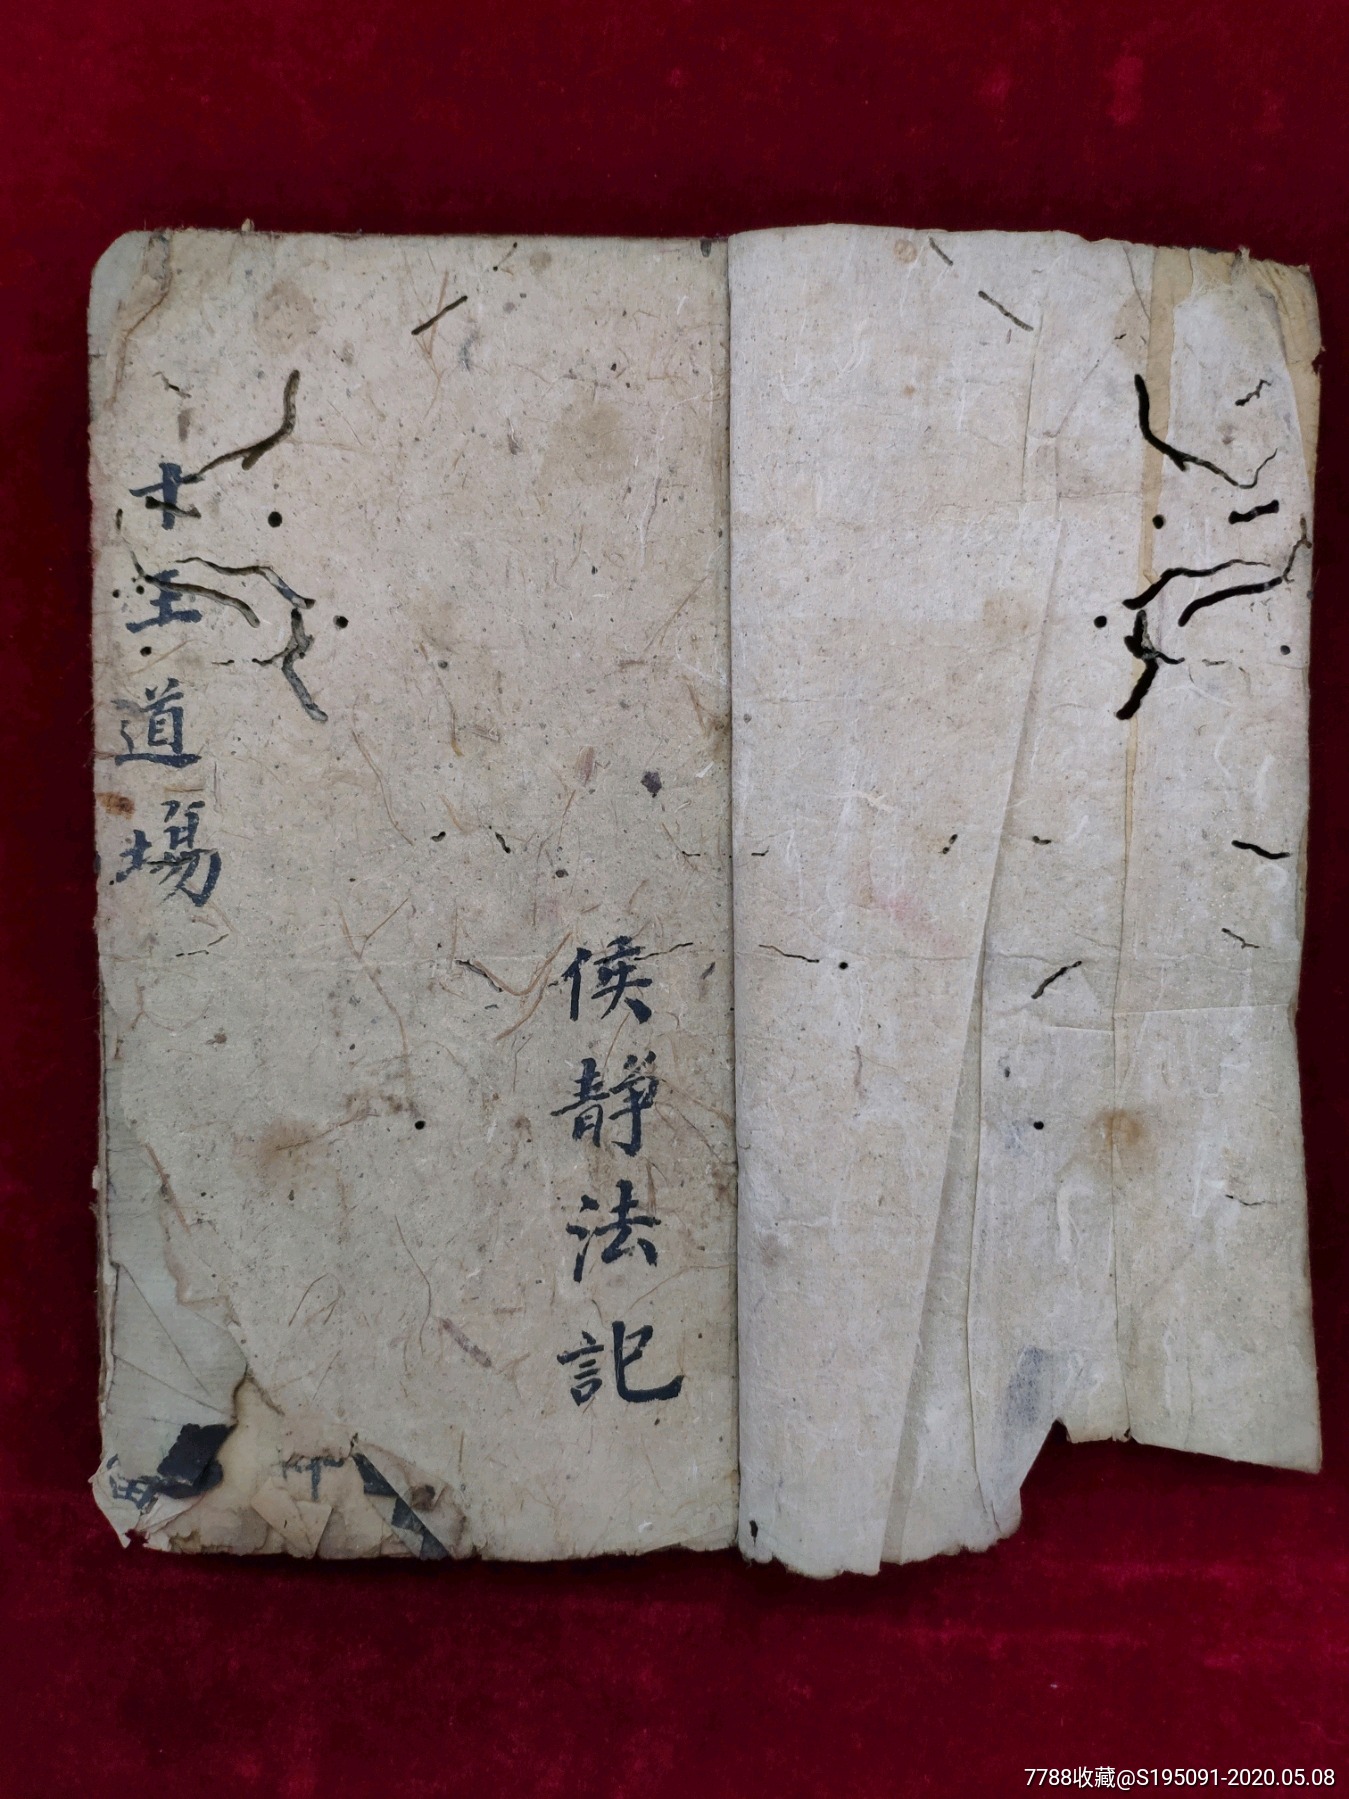 十王道場
侯静法記
7788收藏@S195091-2020.05.08